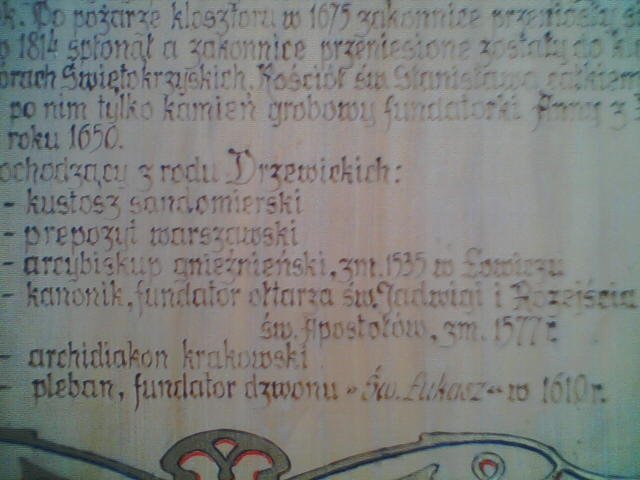 k. Po pożarze klosztoru w 1675 zakonnice przeniosły
1814 spłonął a zakonnice przeniesione zostały do
órach Świętokrzyskich. Kościół św. Stanisława całkiem
po nim tylko kamień grobowy fundatorki Anny z
roku 1650.
ochodzący z rodu Drzewickich:
- kustosz sandomierski
- prepozyt warszawski
- arcybiskup gnieźnieński, zm. 1535 w Łowiczu
- kanonik, fundator ołtarza św. Jadwigi i Rozejścia
św. Apostołów, zm. 1577 r.
- archidiakon krakowski
- pleban, fundator dzwonu "Św. Łukasz" w 1610 r.